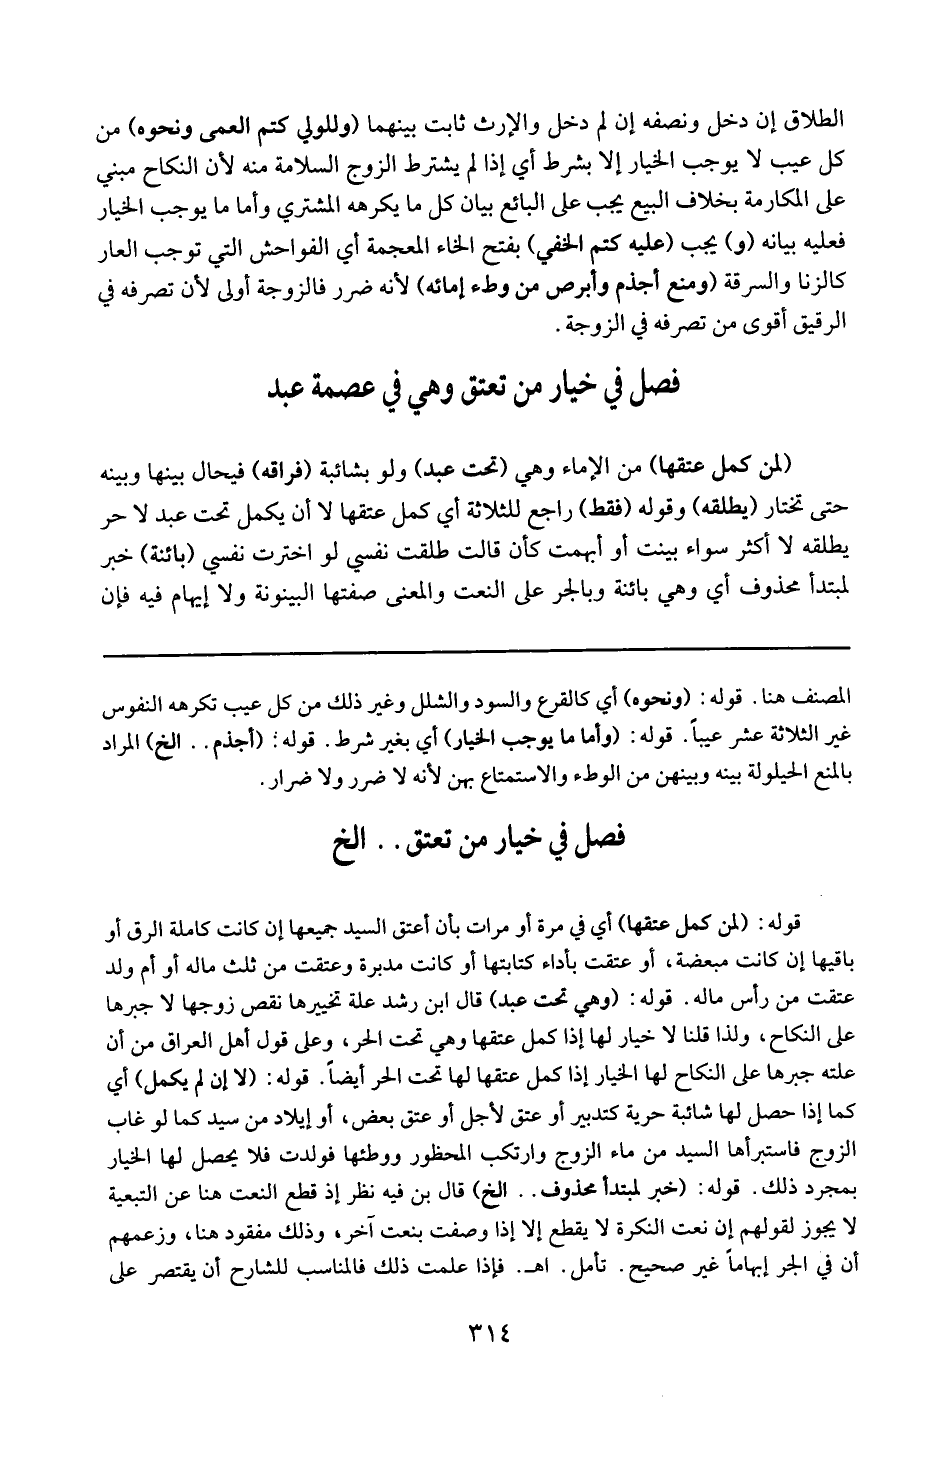 الطلاق إن دخل ونصفه إن لم دخل والإرث ثابت بينهما (وللولي كتم العمى ونحوه) من
كل عيب لا يوجب الخيار إلا بشرط أي إذا لم يشترط الزوج السلامة منه لأن النكاح مبني
على المكارمة بخلاف البيع يجب على البائع بيان كل ما يكرهه المشتري وأما ما يوجب الخيار
فعليه بيانه (و) يجب (عليه كتم الخفي) بفتح الخاء المعجمة أي الفواحش التي توجب العار
كالزنا والسرقة (ومنع أجذم وأبرص من وطء إمائه) لأنه ضرر فالزوجة أولى لأن تصرفه في
الرقيق أقوى من تصرفه في الزوجة.
فصل في خيار من تعتق وهي في عصمة عبد
(لمن كمل عتقها) من الإماء وهي (تحت عبد) ولو بشائبة (فراقه) فيحال بينها وبينه
حتى تختار (يطلقه) وقوله (فقط) راجع للثلاثة أي كمل عتقها لا أن يكمل تحت عبد لا حر
يطلقه لا أكثر سواء بينت أو أبهمت كأن قالت طلقت نفسي لو اخترت نفسي (بائنة) خبر
لمبتدأ محذوف أي وهي بائنة وبالجر على النعت والمعنى صفتها البينونة ولا إيهام فيه فإن
المصنف هنا. قوله: (ونحوه) أي كالقرع والسود والشلل وغير ذلك من كل عيب تكرهه النفوس
غير الثلاثة عشر عيباً. قوله: (وأما ما يوجب الخيار) أي بغير شرط. قوله: (أجذم.. الخ) المراد
بالمنع الحيلولة بينه وبينهن من الوطء والاستمتاع بهن لأنه لا ضرر ولا ضرار.
فصل في خيار من تعتق.. الخ
قوله: (لمن كمل عتقها) أي في مرة أو مرات بأن أعتق السيد جميعها إن كانت كاملة الرق أو
باقيها إن كانت مبعضة، أو عتقت بأداء كتابتها أو كانت مدبرة وعتقت من ثلث ماله أو أم ولد
عتقت من رأس ماله. قوله: (وهي تحت عبد) قال ابن رشد علة تخييرها نقص زوجها لا جبرها
على النكاح، ولذا قلنا لا خيار لها إذا كمل عتقها وهي تحت الحر، وعلى قول أهل العراق من أن
علته جبرها على النكاح لها الخيار إذا كمل عتقها لها تحت الحر أيضاً. قوله: (لا إن لم يكمل) أي
كما إذا حصل لها شائبة حرية كتدبير أو عتق لأجل أو عتق بعض، أو إيلاد من سيد كما لو غاب
الزوج فاستبرأها السيد من ماء الزوج وارتكب المحظور ووطئها فولدت فلا يحصل لها الخيار
بمجرد ذلك. قوله: (خبر لمبتدأ محذوف.. الخ) قال بن فيه نظر إذ قطع النعت هنا عن التبعية
لا يجوز لقولهم إن نعت النكرة لا يقطع إلا إذا وصفت بنعت آخر، وذلك مفقود هنا، وزعمهم
أن في الجر إيهاماً غير صحيح. تأمل. اهـ. فإذا علمت ذلك فالمناسب للشارح أن يقتصر على
٣١٤